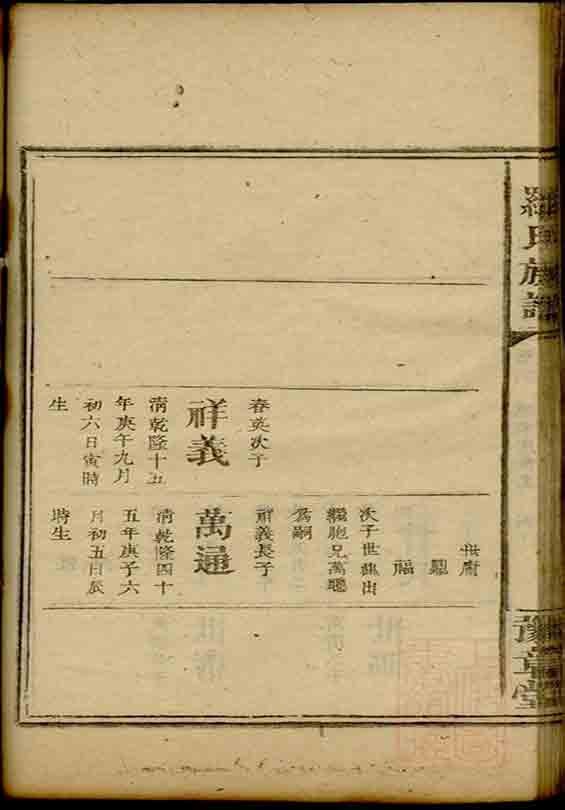 羅氏族譜
豫章堂
春英次子
祥義
清乾隆十五
年庚午九月
初六日寅時
生
世
福
次子世出
繼胞兄萬
爲嗣
祥義長子
萬通
清乾隆四十
五年庚子六
月初五日辰
時生